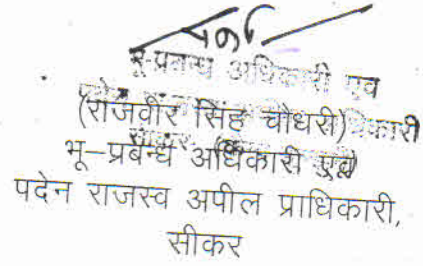 भू-प्रबन्ध अधिकारी एवं
(राजवीर सिंह चौधरी)
भू–प्रबन्ध अधिकारी एवं
पदेन राजस्व अपील प्राधिकारी,
सीकर